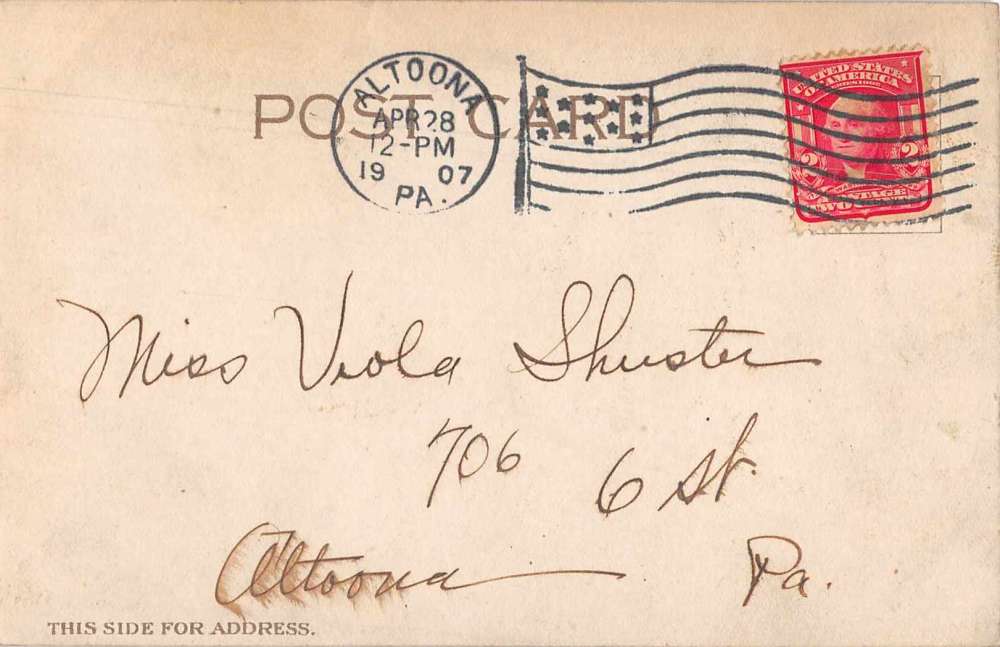 POST CARD
ALTOONA
APR 28
12-PM
19 07
PA.
UNITED STATES
OF AMERICA
2 2
Miss Viola Shuster
706 6 St.
Altoona Pa.
THIS SIDE FOR ADDRESS.